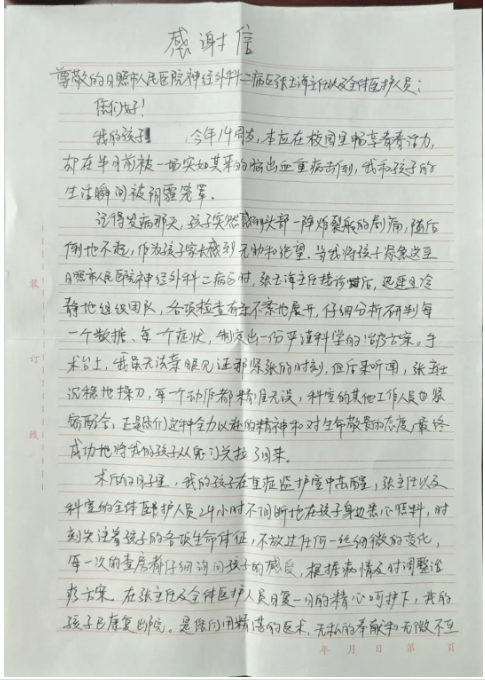 感谢信
尊敬的日照市人民医院神经外科二病区张玉海主任以及全体医护人员：
你们好！
我的孩子 今年14周岁，本应在校园里畅享青春活力，
却在半月前被一场突如其来的脑出血重病击倒，我和孩子的
生活瞬间被阴霾笼罩。
记得发病那天，孩子突然感到头部一阵炸裂般的剧痛，随后
倒地不起，作为孩子家长感到无助和绝望。当我将孩子紧急送至
日照市人民医院神经外科二病区时，张玉海主任接诊后，迅速且冷
静地组织团队，各项检查有条不紊地展开，仔细分析研判每
一个数据、每一个症状，制定出一份严谨科学的治疗方案。手
术台上，我虽无法亲眼见证那紧张的时刻，但后来听闻，张主任
沉稳地操刀，每一个动作都精准无误，科室的其他工作人员也紧
密配合，正是你们这种全力以赴的精神和对生命敬畏的态度，最终
成功地将我的孩子从鬼门关拉了回来。
术后的日子里，我的孩子在重症监护室中苏醒，张主任以及
科室的全体医护人员24小时不间断地在孩子身边悉心照料，时
刻关注着孩子的各项生命体征，不放过任何一丝细微的变化，
每一次的查房都仔细询问孩子的感受，根据病情及时调整治
疗方案。在张主任及全体医护人员日复一日的精心呵护下，我的
孩子已康复出院。是你们用精湛的医术、无私的奉献和无微不至
装
订
线
年 月 日 第 页